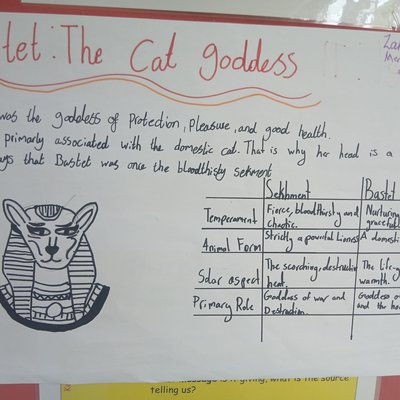 tet: The Cat goddess
Zar
was the goddess of Protection, Pleasure, and good health.
primarly associated with the domestic cat. That is why her head is a
ys that Bastet was once the bloodthisty sekhment
Sekhment Bastet
Temperament Fierce, bloodthirsty and chaotic. Nurturing graceful
Animal Form Strictly a powerful Lioness A domesti
Solar aspect The scorching, destructive heat. The life-g warmth.
Primary Role Goddess of war and Destruction. Goddess o and the ho
message is it giving, what is the source
telling us?